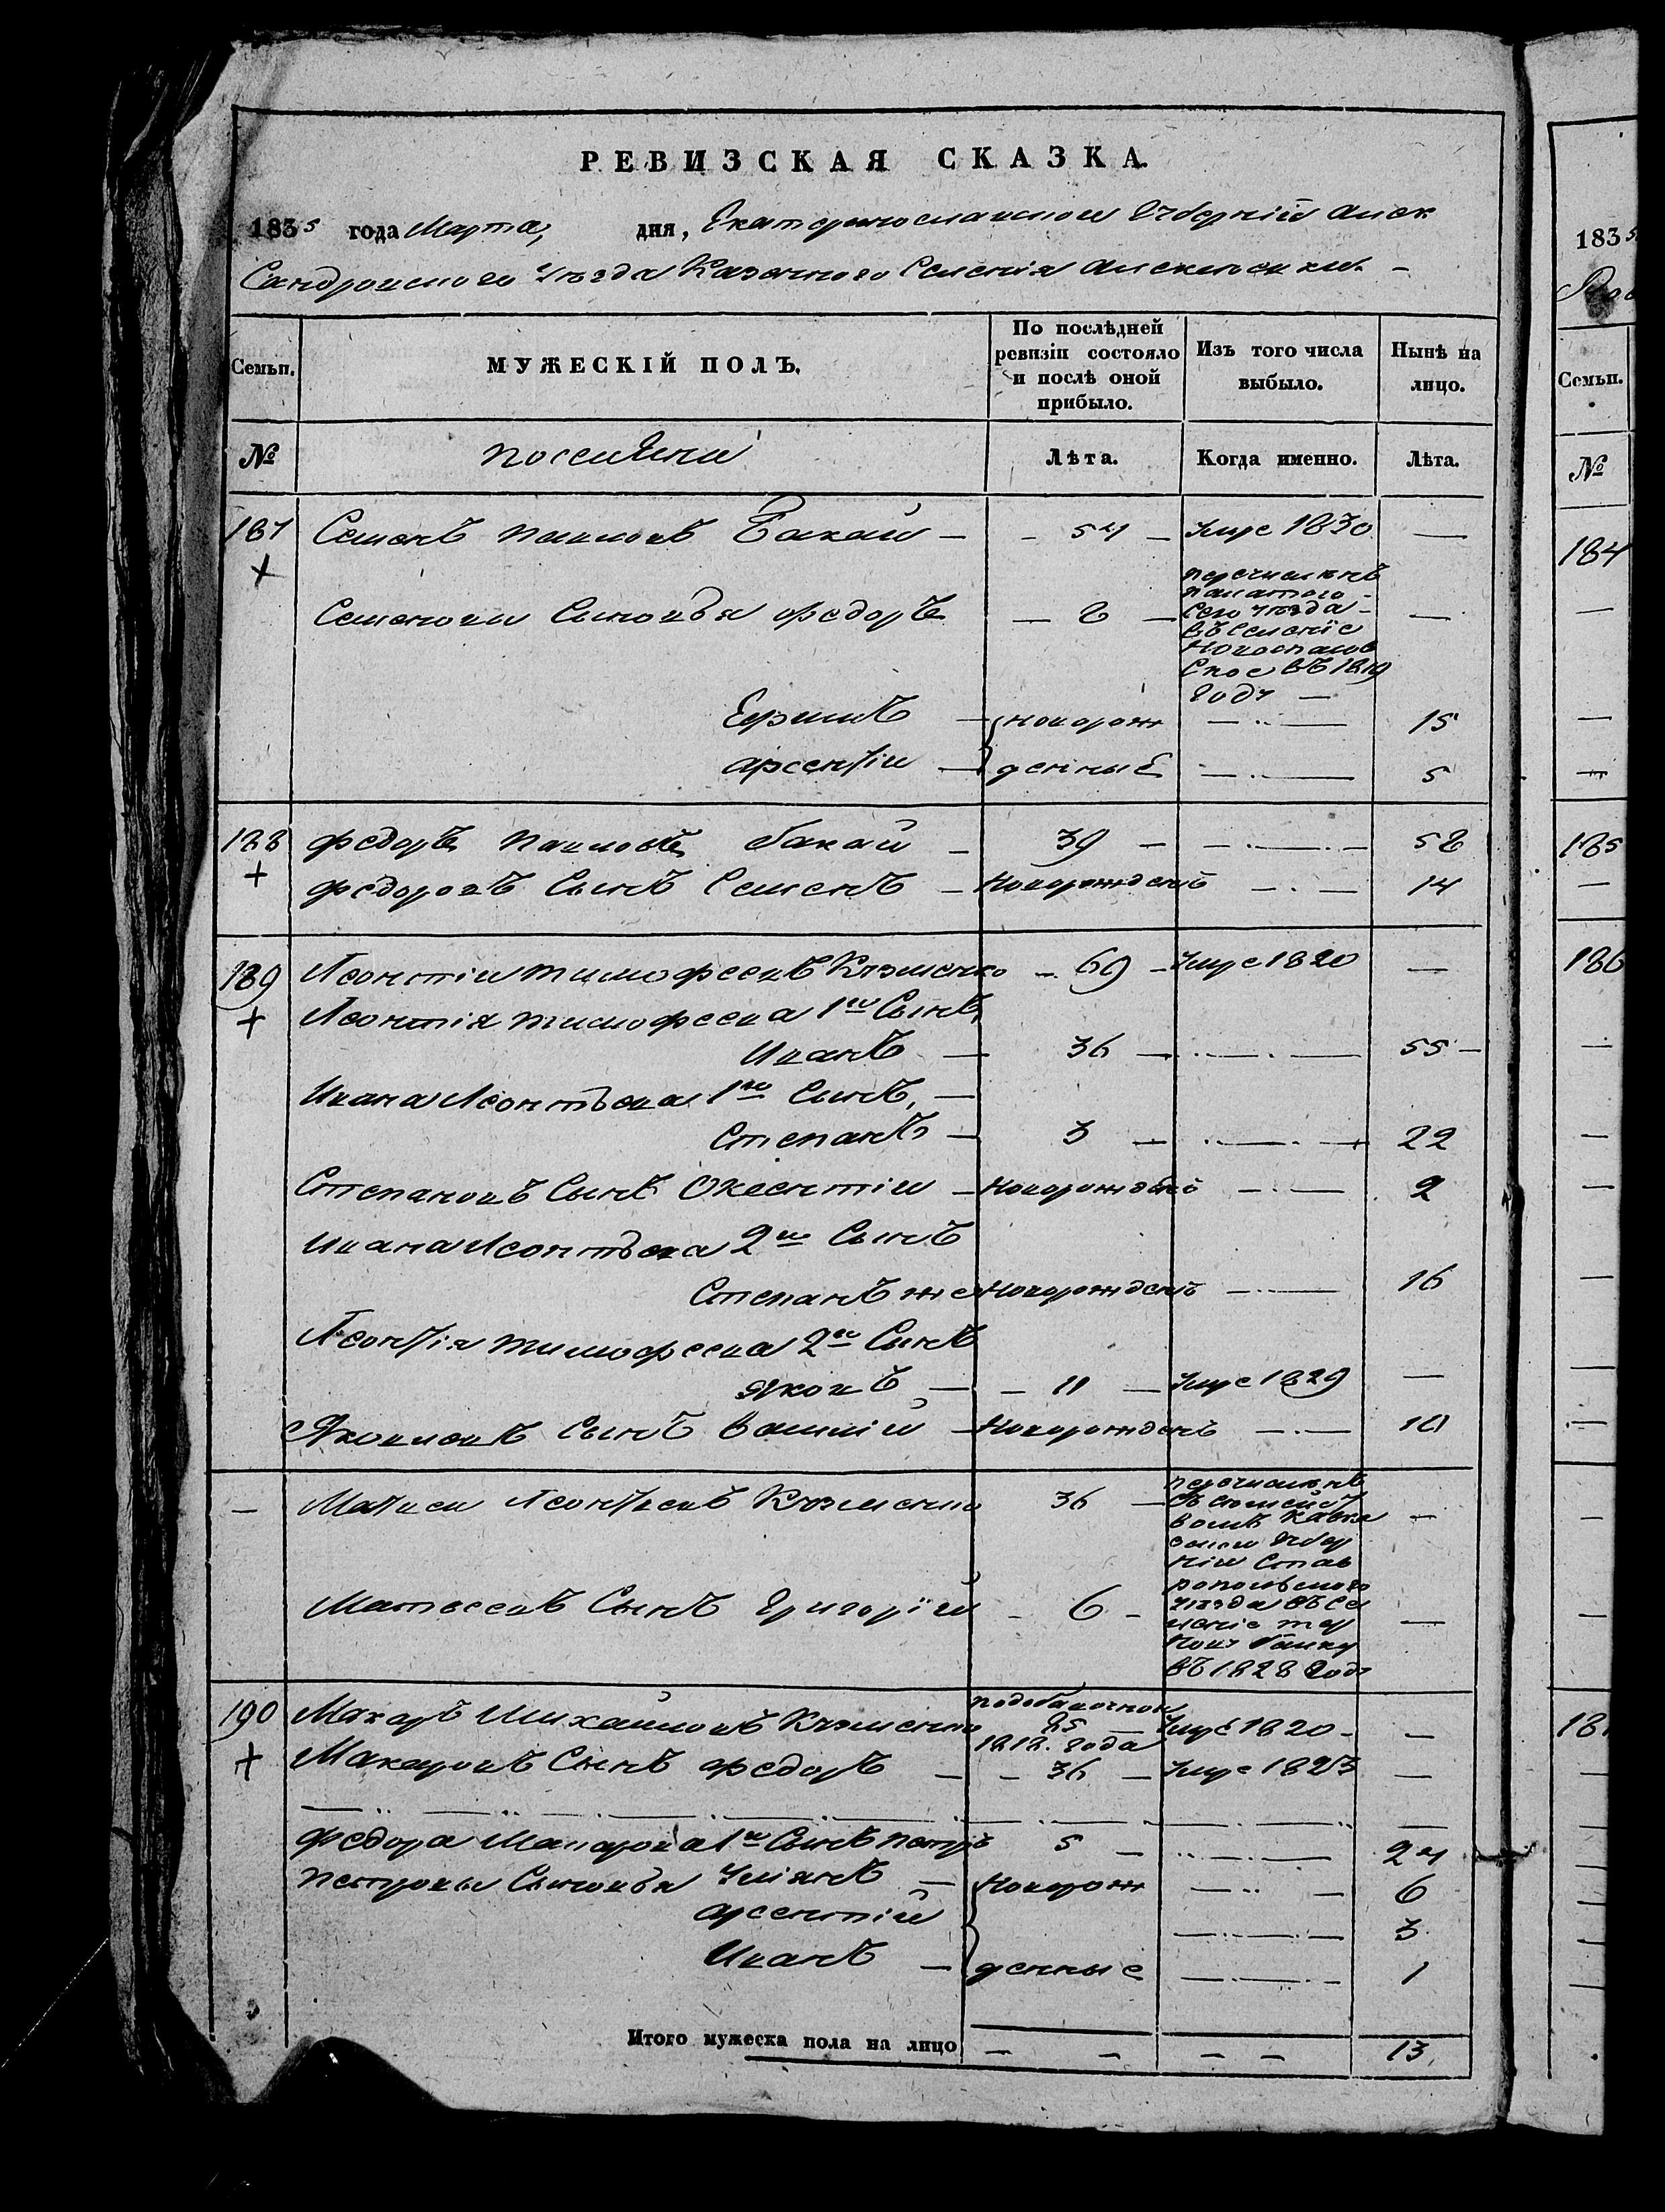 РЕВИЗСКАЯ СКАЗКА.
1835 года Марта, дня, Екатеринославской Губерніи Алек
Сандровского Уѣзда Казенного Селенія Алексѣевки. –
Семьи. МУЖЕСКІЙ ПОЛЪ. По послѣдней ревизіи состояло и послѣ оной прибыло. Изъ того числа выбыло. Нынѣ на лицо.
№ поселяни Лѣта. Когда именно. Лѣта.
187 Семенъ Павловъ Бакай – 54 – Умре 1830 —
+
Семеновы Сыновья Федоръ — 8 — перечисленъ
Сего уѣзда
въ Селеніе
Новоспасов
Ское въ 1819
Году —
Ефимъ — новорож 15
Арсентіи — денные 5
188 Федоръ Павловъ бакай – 39 – 58
+ Федоровъ Сынъ Семенъ – Новорожденъ 14
189 Леонтіи Тимофеевъ Кузменко – 69 – Умре 1820 —
+ Леонтія тимофеева 1й Сынъ,
Иванъ — 36 — 55 –
Ивана Леонтьева 1й Сынъ, —
Степанъ — 3 — 22
Степановъ Сынъ Оксентіи – Новорожденъ 2
Ивана Леонтьева 2й Сынъ
Степанъ же Новорожденъ 16
Леонтія тимофеева 2й Сынъ
Яковъ — – 11 — Умре 1829 —
Яковлевъ Сынъ Василій – Новорожденъ 10
– Матвеи Леонтьевъ Кузменко 36 — перечисленъ
Съ семейст
вомъ Кавка
ской Губер
ніи Став
ропольского
Матвеевъ Сынъ Григорій – 6 – уѣзда въ Се
леніе тер
нову балку
въ 1828 Году
190 Макаръ Михайловъ Кузменко 85 — Умре 1820 – –
1812. Года
+ Макаровъ Сынъ Федоръ — – 36 — Умре 1823 —
Федора Макарова 1й Сынъ петръ 5 — 24
петровы Сыновья Уліянъ — Новорож 6
Арсентій 3
Иванъ — денные 1
Итого мужеска пола на лицо – – – – 13.
1835
Семьи.
№
184
185
186